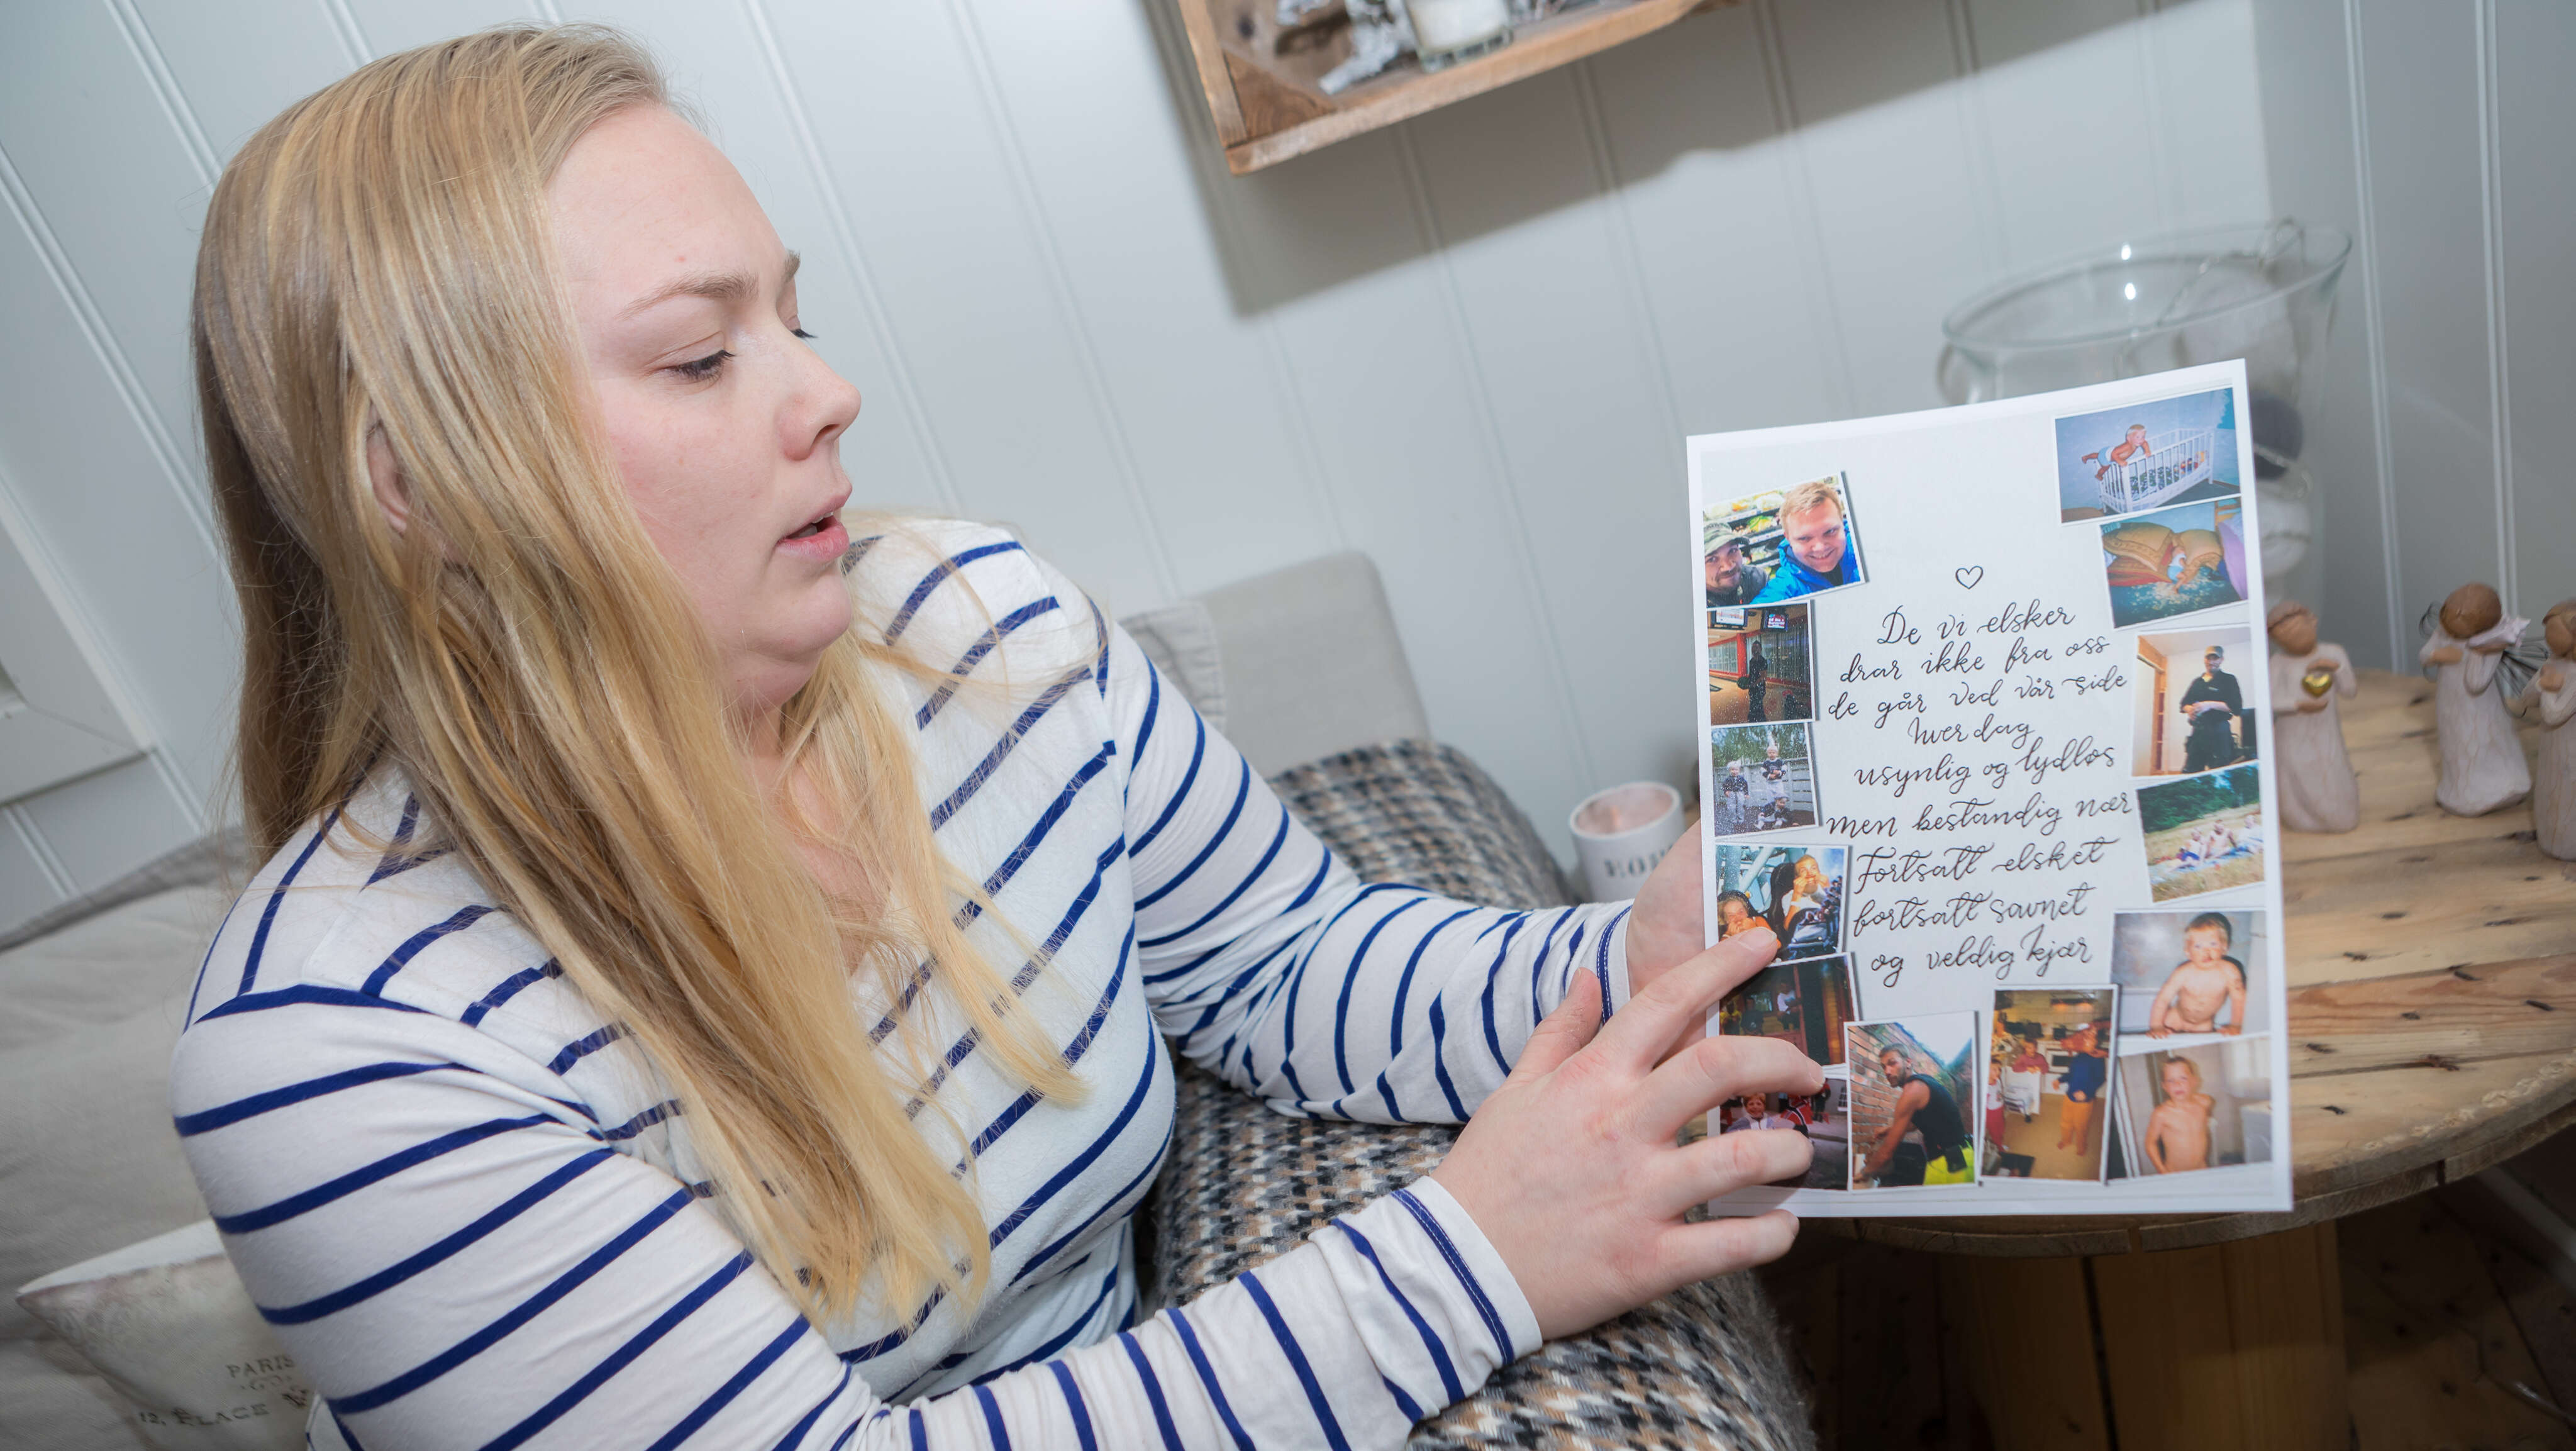 De vi elsker
drar ikke fra oss
de går ved vår side
hver dag
usynlig og lydløs
men bestandig nær
Fortsatt elsket
fortsatt savnet
og veldig kjær
PARIS
12, PLACE